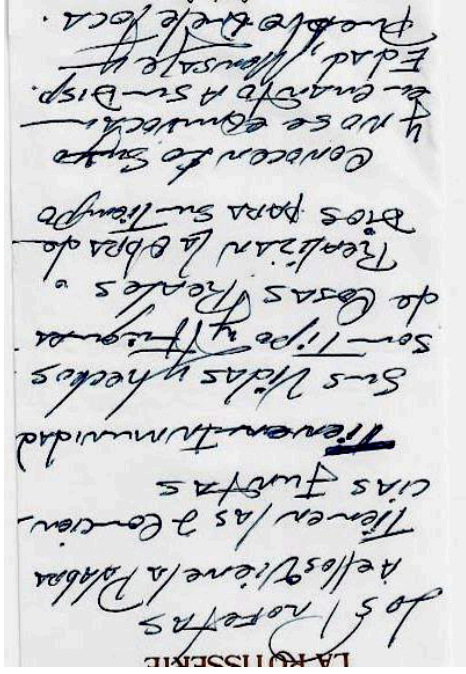 LA ROTISSERIE
Los Profetas
A ellos Viene la Palabra
Tienen las 2 Concien-
cias Juntas
Tienen Inmunidad
Sus Vidas y hechos
son Tipo y Figuras
de Cosas Reales.
Realizan la Obra de
DIOS para su Tiempo
Conocen lo Suyo
y NO se equivocan
en cuanto A su Disp.
Edad, Mensaje y
Pueblo que le Toca.